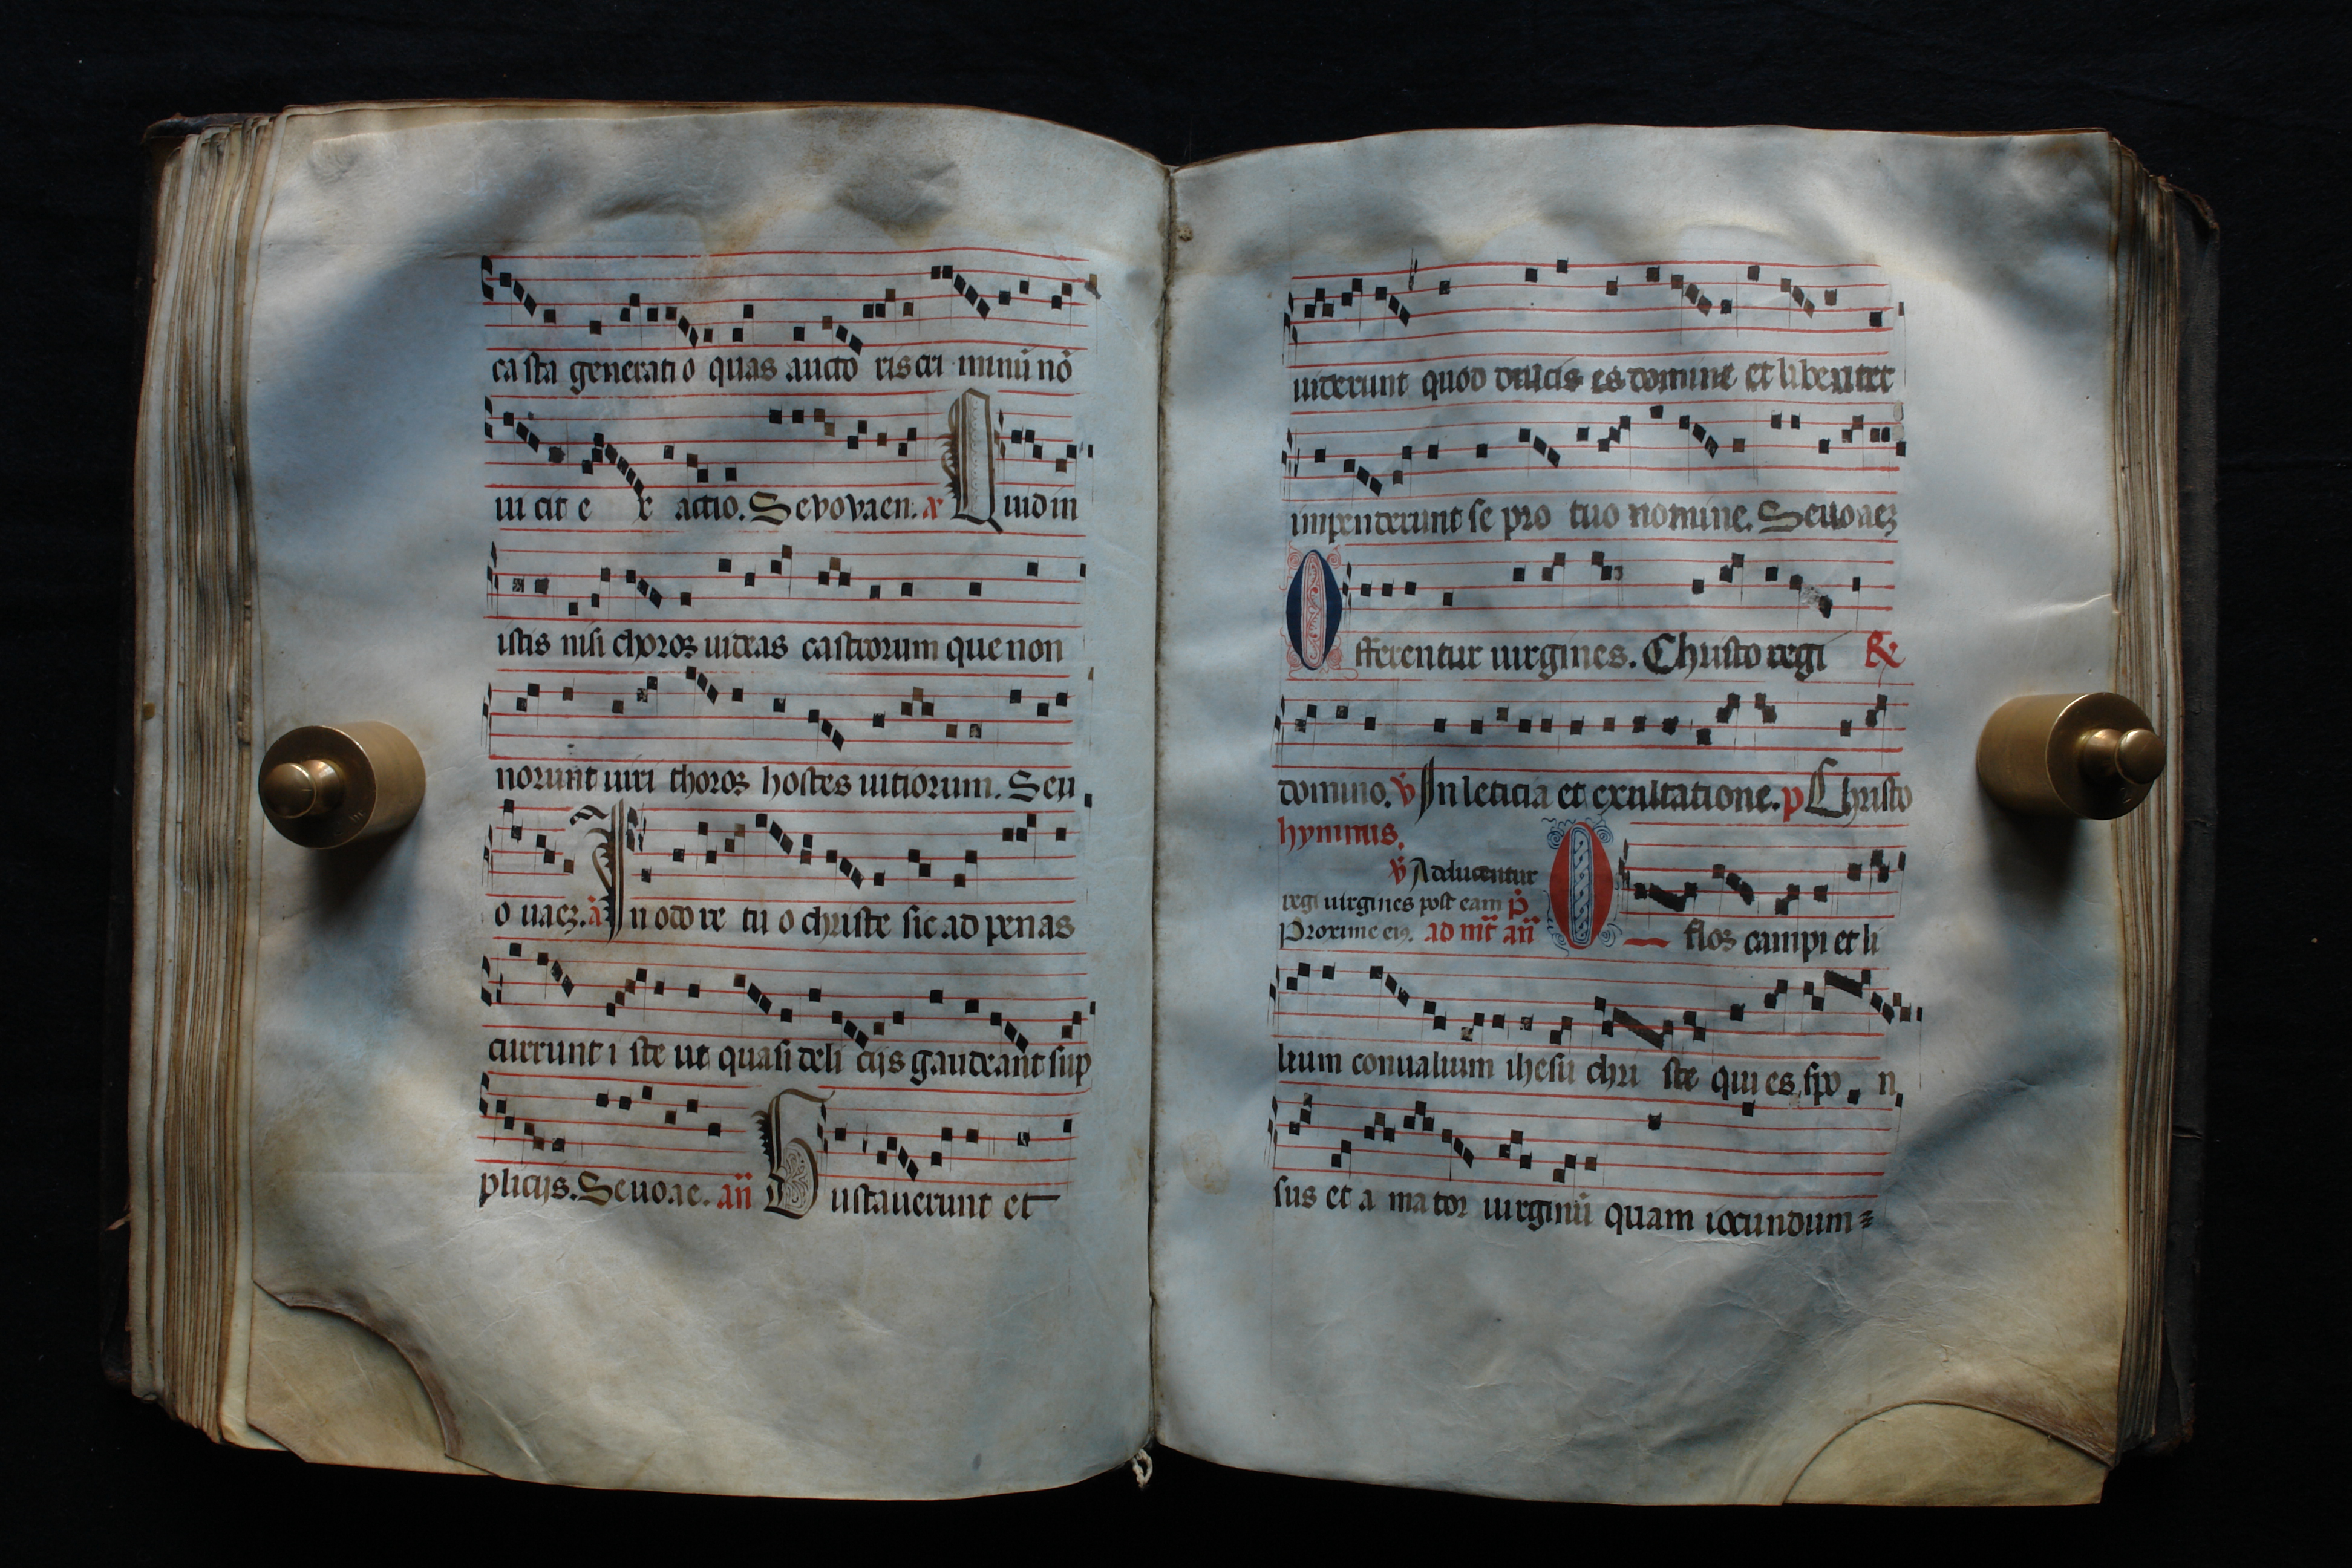 casta generatio quas aucto ris cri minū nō
iu cit e x actio. Sevovaen. Quid in
istis nisi choroꝝ uideas castrorum que non
norunt uiri thoroꝝ hostes uitiorum. Seu
o uaeꝫ. ā In odore tuo christe sic ad penas
currunt iste ut quasi delicijs gaudeant sup
plicijs. Seuoae. an̄ Gustauerunt et
uiderunt quod dulcis es domine et libenter
impenderunt se pro tuo nomine. Seuoaeꝫ
Offerentur uirgines. Christo regi ℟
domino. ℣ In leticia et exultatione. p Christo
hymnus.
℣ Adducentur
regi uirgines post eam p̄
Proxime eiꝰ. ad mr̄ an̄ O flos campi et li
lium conualium ihesu chri ste qui es spo n
sus et a mator uirginū quam iocundum